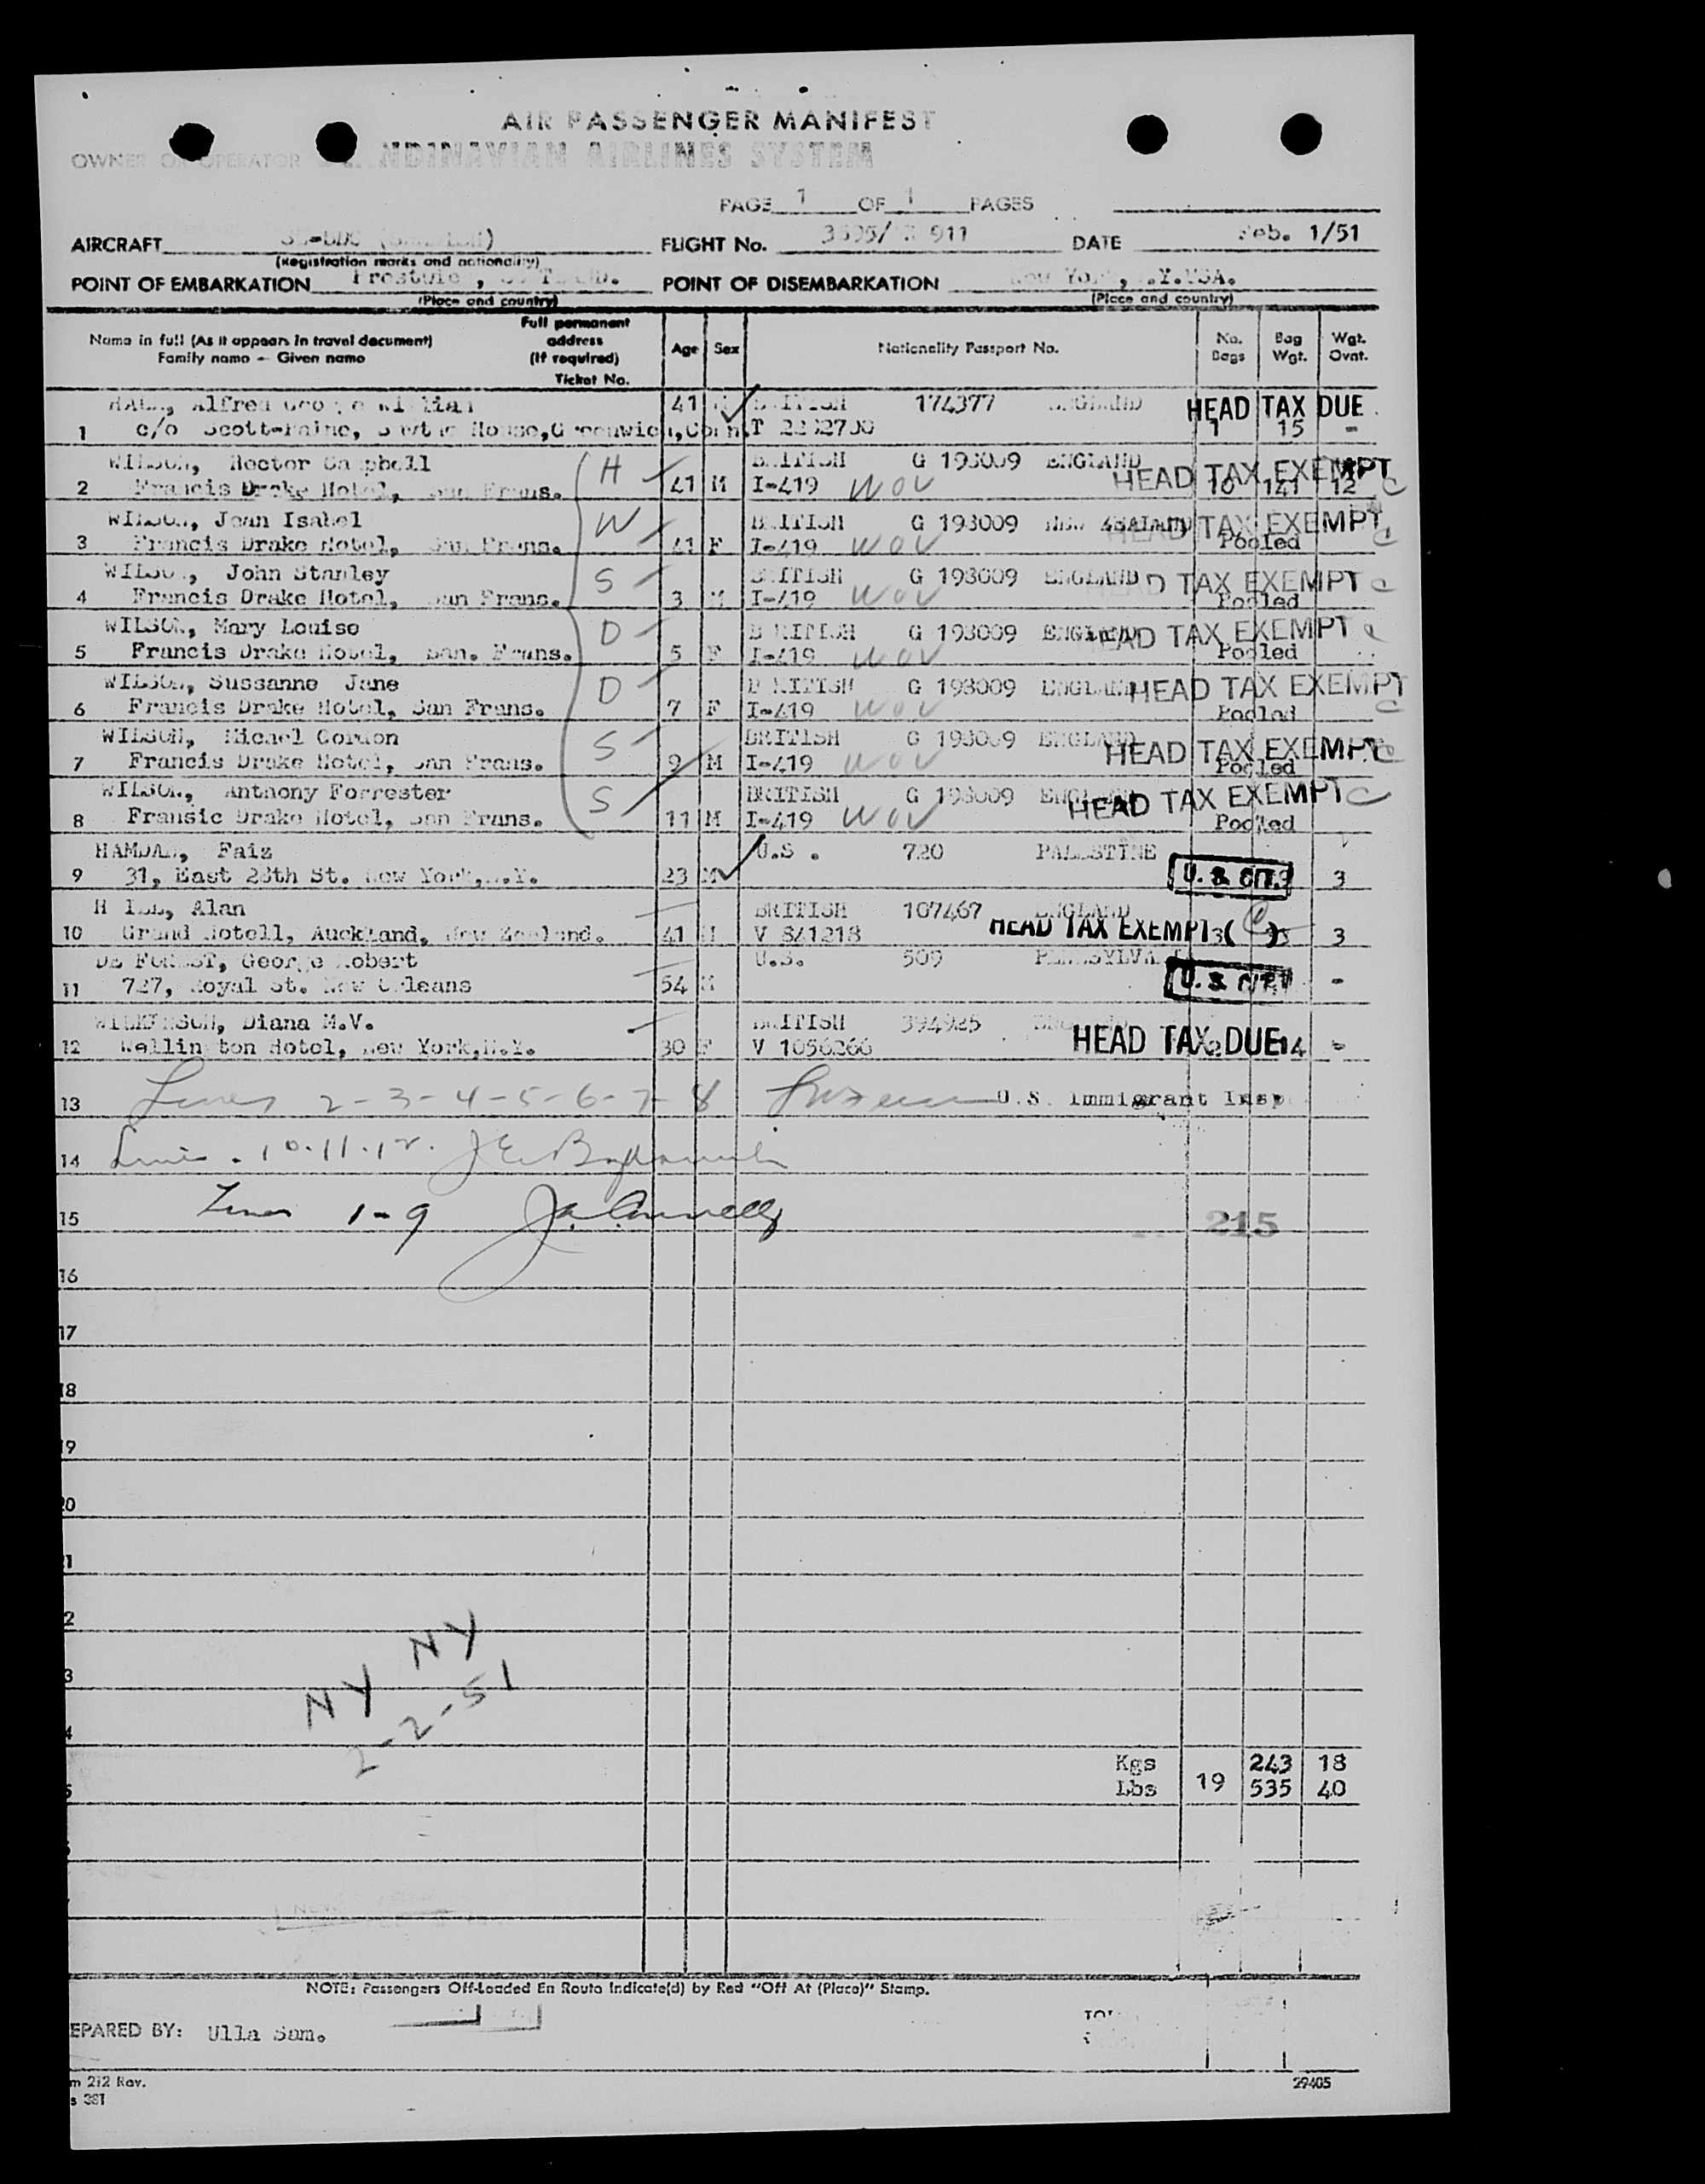 AIR PASSENGER MANIFEST
OWNER OR OPERATOR NDINAVIAN AIRLINES SYSTEM
PAGE 1 OF 1 PAGES
AIRCRAFT FLIGHT No. 911 DATE Feb. 1/51
(Registration marks and nationality)
POINT OF EMBARKATION POINT OF DISEMBARKATION New York, N.Y.USA.
(Place and country) (Place and country)
Name in full (As it appears in travel document) Full permanent address (If required) Age Sex Nationality Passport No. No. Bags Bag Wgt. Wgt. Ovnt.
Family name — Given name Ticket No.
Alfred George William 41 M BRITISH 174377 ENGLAND HEAD TAX DUE
1 c/o Scott-Paine, House, Greenwich, Conn. T 1 15 -
WILSON, Hector Campbell H BRITISH G 193009 ENGLAND HEAD TAX EXEMPT
2 Francis Drake Hotel, San Frans. 41 M I-419 WOV 10 141 12 C
WILSON, Jean Isabel W BRITISH G 193009 NEW ZEALAND HEAD TAX EXEMPT
3 Francis Drake Hotel, San Frans. 41 F I-419 WOV Pooled C
WILSON, John Stanley S BRITISH G 193009 ENGLAND HEAD TAX EXEMPT C
4 Francis Drake Hotel, San Frans. 3 M I-419 WOV Pooled
WILSON, Mary Louise D BRITISH G 193009 ENGLAND HEAD TAX EXEMPT C
5 Francis Drake Hotel, San. Frans. 5 F I-419 WOV Pooled
WILSON, Sussanne Jane D BRITISH G 193009 ENGLAND HEAD TAX EXEMPT
6 Francis Drake Hotel, San Frans. 7 F I-419 WOV Pooled C
WILSON, Michel Gordon S BRITISH G 193009 ENGLAND HEAD TAX EXEMPT C
7 Francis Drake Hotel, San Frans. 9 M I-419 WOV Pooled
WILSON, Anthony Forrester S BRITISH G 193009 ENGLAND HEAD TAX EXEMPT C
8 Fransic Drake Hotel, San Frans. 11 M I-419 WOV Pooled
HAMDAN, Faiz U.S. 720 PALESTINE
9 31, East 28th St. New York, N.Y. 23 M U. S. CIT. 3
Alan BRITISH 107467 ENGLAND
10 Grand Hotell, Auckland, New Zealand. 41 M V 841218 HEAD TAX EXEMPT 3 (C) 3
DE FOREST, George Robert U.S. 509
11 727, Royal St. New Orleans 54 M U. S. CIT. -
WILKINSON, Diana M.V. BRITISH 394925
12 Wellington Hotel, New York, N.Y. 30 F V 1056266 HEAD TAX DUE 2 14 -
13 Lines 2-3-4-5-6-7-8 U.S. Immigrant Insp
14 Lines. 10.11.12.
15 Lines 1-9 J. Connelly 215
16
17
18
19
20
21
2
3
4
NY NY
2-2-51
Kgs 243 18
Lbs 19 535 40
NOTE: Passengers Off-Loaded En Route Indicate(d) by Red "Off At (Place)" Stamp.
EPARED BY: Ulla Sam.
TOT
m 212 Rev.
s 381
29405